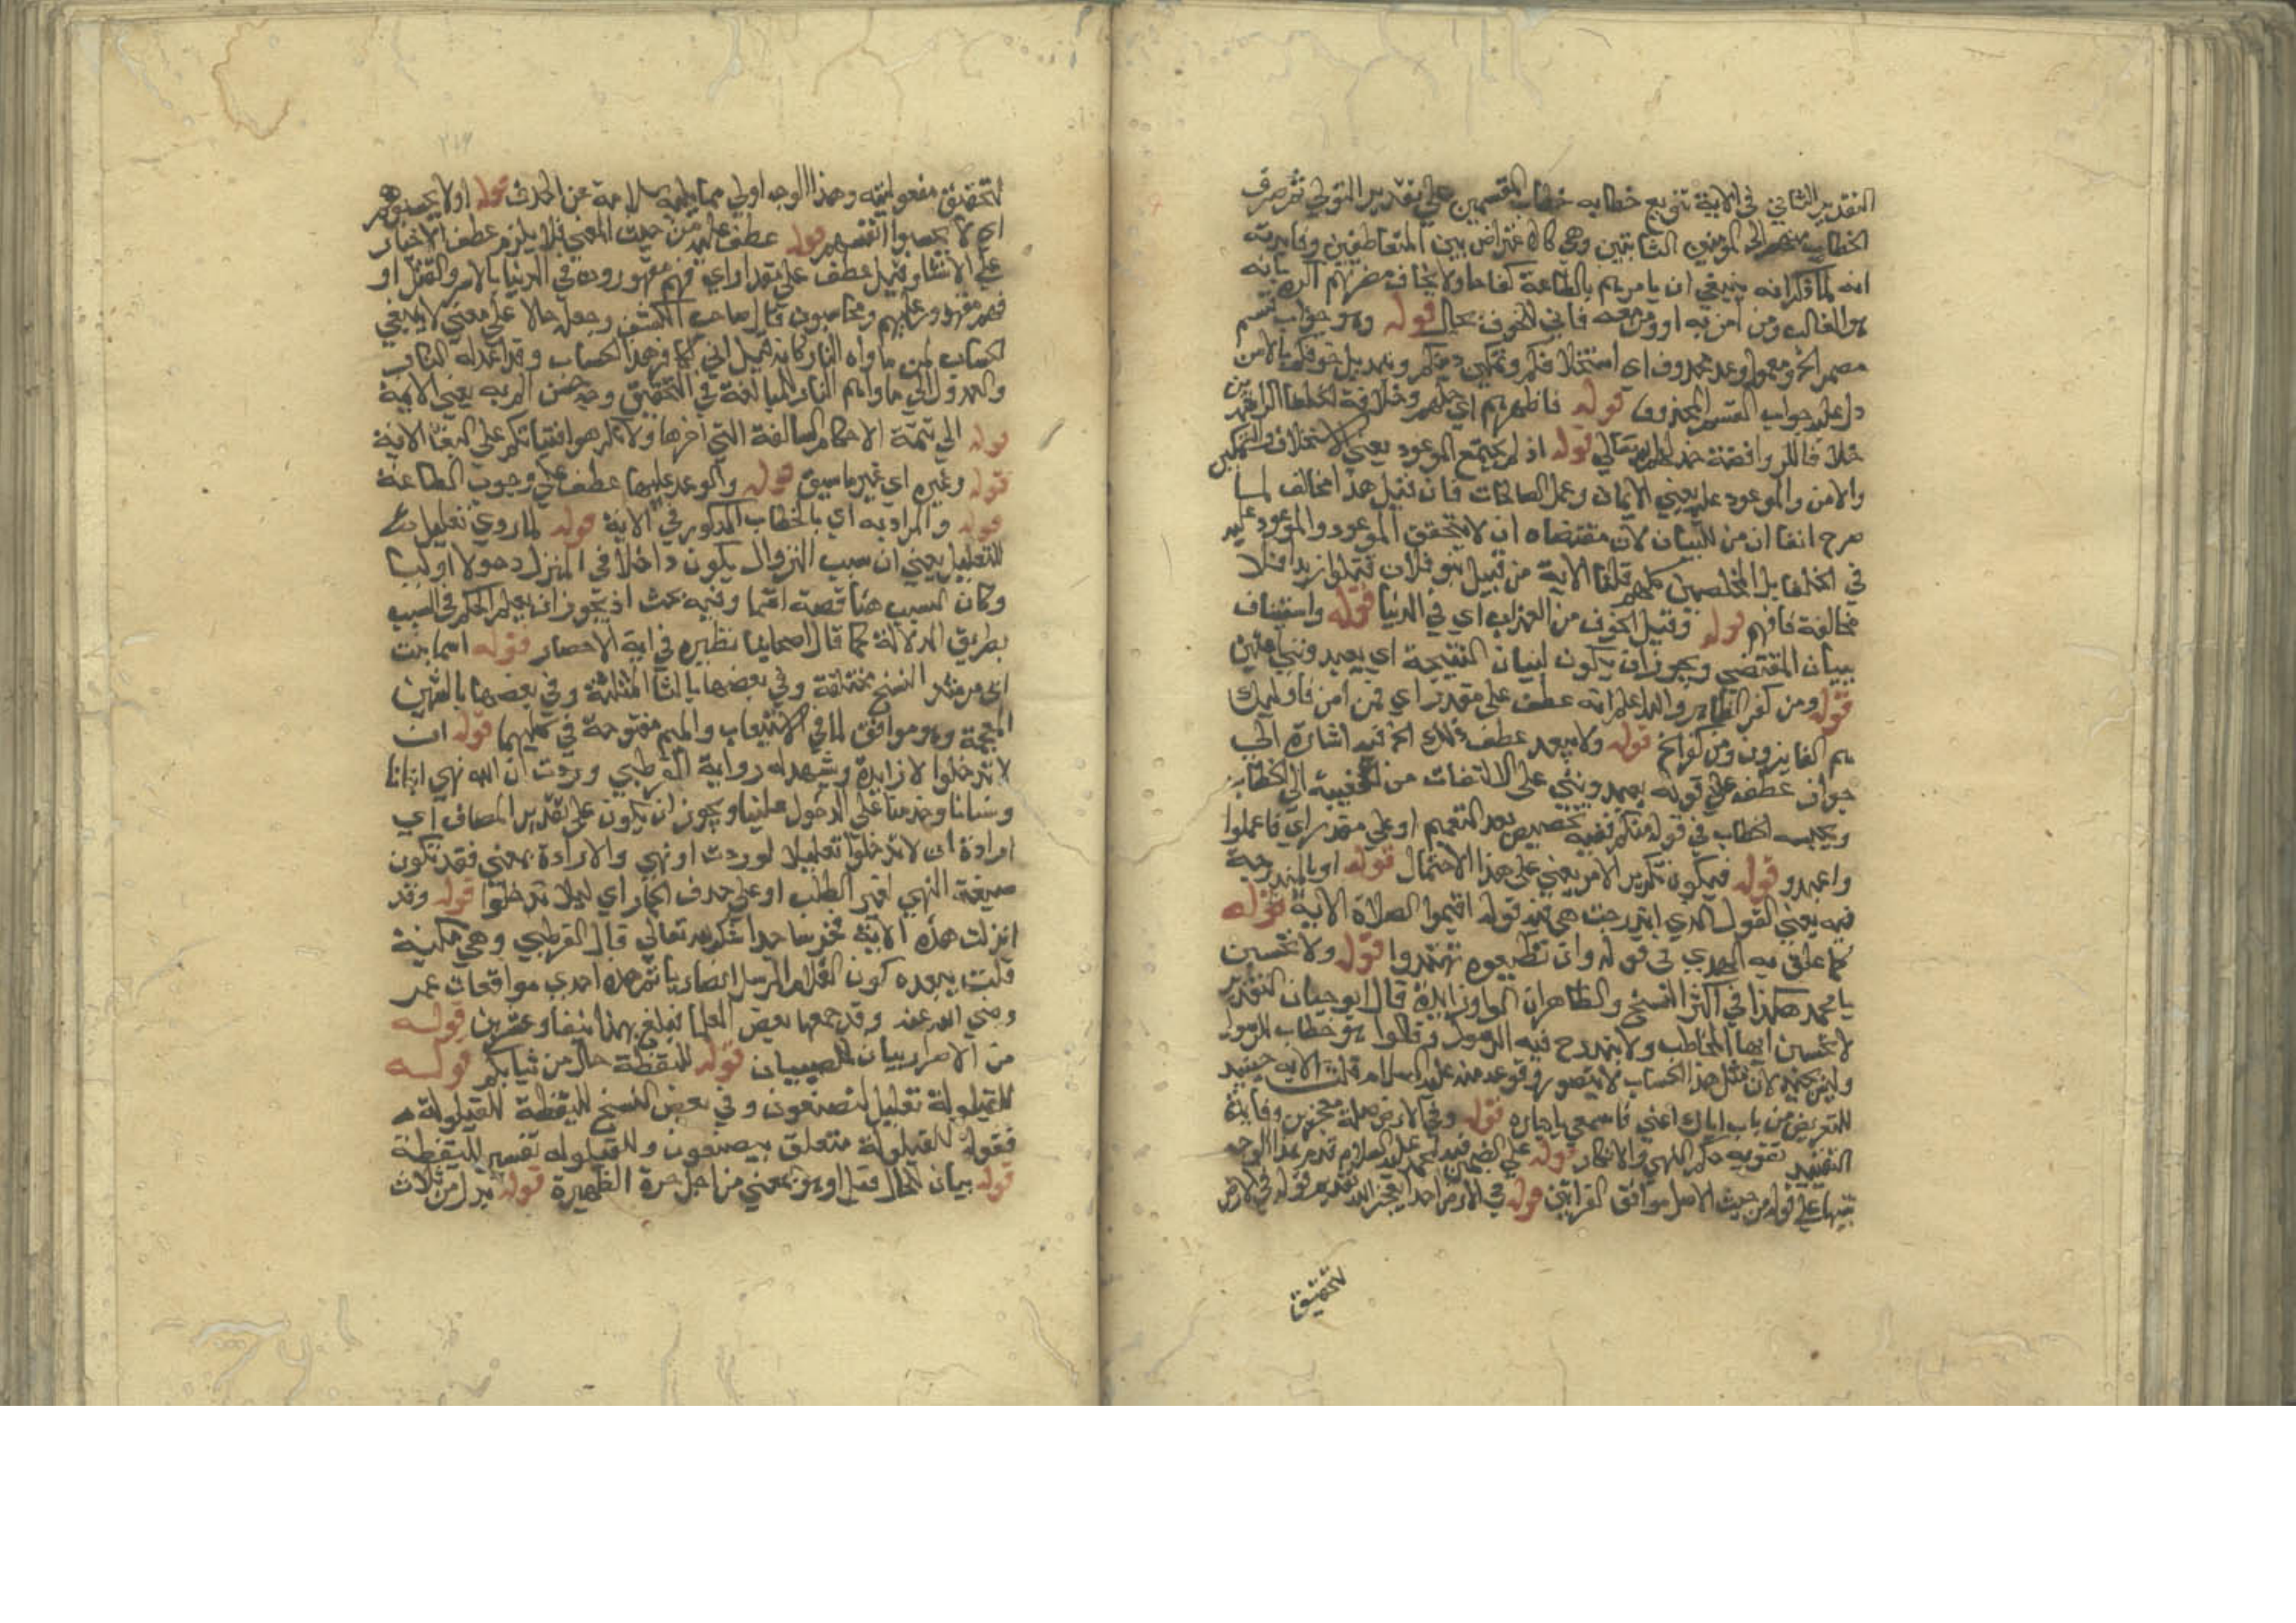 التقدير الثاني في الاية تنويع خطابه خطاب المقسمين على تقدير التولي ثم صرف
الخطاب منهم الى المومنين الثابتين وهي كالاعتراض بين المتعاطفين وفايدته
انه لما ذكر انه ينبغي ان يامرهم بالطاعة كفاحا ولا يخاف مضرتهم اكده بانه
هو الغالب ومن امن به او ومن معه فانى للخوف مجال قوله وهو جواب قسم
مضمر الخ ومعمول وعد محذوف اى استخلافكم وتمكين دينكم وتبديل خوفكم بالامن
دل عليه جواب القسم المحذوف قوله فاظهرهم اى وخلافة الخلفا الراشدين
خلافا للروافضة خذلهم الله تعالى قوله اذ لم يجتمع الموعود يعني الاستخلاف والتمكين
والامن والموعود عليه يعني الايمان وعمل الصالحات فان قيل هذا مخالف لما
صرح انفا ان من للبيان لان مقتضاه ان لا يتحقق الموعود والموعود عليه
في الخلفا بل المخلصين كلهم قلنا الاية من قبيل بنو فلان قتلوا زيدا فلا
مخالفة فافهم قوله وقيل الخوف من العذاب اي في الدنيا قوله واستيناف
ببيان المقتضي ويجوز ان يكون لبيان النتيجة اي يعبدونني امنين
قوله ومن كفر الظاهر والله اعلم انه عطف على مقدر اي من امن فاوليك
هم الفايزون ومن كفر الخ قوله ولا يبعد عطف ذلك الخ فيه اشارة الى
جواز عطفه على قوله يعبدونني على الالتفات من الغيبة الى الخطاب
الخطاب في قوله منكم ففيه تخصيص بعد التعميم او على مقدر اي فاعملوا
واعبدو قوله فيكون تكرير الامر يعني على هذا الاحتمال قوله او بالمندرجة
فيه يعني القول الذي اندرجت هي فيه قوله اقيموا الصلاة الاية قوله
كما علق به الهدي في قوله وان تطيعوه تهتدوا قوله ولا تحسبن
يا محمد هكذا في اكثر النسخ والظاهر ان الواو زايدة قال ابو حيان التقدير
لا تحسبن ايها المخاطب ولا يندرج فيه الرسول وقالوا هو خطاب للرسول
وليس بجيد لان مثل هذا الحسبان لا يتصور وقوعه منه عليه السلام قلت الاية حينيد
للتعريض من باب اياك اعني فاسمعي يا جاره قوله وفي الارض صلة معجزين وفايدة
التقييد تقوية حكم النهي والانكار قوله على الضمير فيه لمحمد عليه السلام قدم هذا الوجه
تنبيها على قوله من حيث الاصل موافق القراتين قوله في الارض احدا يعجز الله بتقدير قوله في الارض
لتحقيق
٢١٤
لتحقيق مفعوليته وهذا الوجه اولى مما يليه سلامة عن الحذف قوله اولا يحسبوهم
اى لا يحسبوا انفسهم قوله عطف عليه من حيث المعنى فلا يلزم عطف الاخبار
على الانشا وقيل عطف على مقدر اى فهم مقهورون في الدنيا بالاسر والقتل او
فهم مقدور عليهم ومحاسبون قال صاحب الكشف وجعله حالا على معنى لا ينبغي
الحساب لمن ماواه النار كانه قيل انى للكافر هذا الحساب وقد اعد له النار
والعدول الى ماواهم النار للمبالغة في التحقيق يعني الاية
قوله الى تتمة الاحكام السالفة التي اخرها ولا تكرهوا فتياتكم على البغا الاية
قوله وغيره اى غير ما سبق قوله والوعد عليها عطف على وجوب الطاعة
قوله والمراد به اي بالخطاب المذكور في الاية قوله لما روي تعليل
للتعليل يعني ان سبب النزول يكون داخلا في المنزل دخولا اوليا
وكان السبب هنا قصة اسما وفيه بحث اذ يجوز ان يعلم الحكم في السبب
بطريق الدلالة كما قال اصحابنا نظيره في اية الاحصار قوله اسما بنت
ابى مرشد النسخ مختلفة وفي بعضها بالثا المثلثة وفي بعضها بالشين
المعجمة وهو موافق لما في الاستيعاب والميم مفتوحة في كليهما قوله ان
لا تدخلوا لا زايدة ويشهد له رواية القرطبي وددت ان الله نهى ابنانا
ونسانا وخدمنا على الدخول علينا ويجوز ان يكون على تقدير المضاف اي
ارادة ان لا تدخلوا تعليلا لوددت او نهى والارادة بمعنى فقد تكون
صيغة النهي لغير الطلب او على حذف الجار اي ليلا تدخلوا قوله وقد
انزلت هذه الاية فخر ساجدا شكرا لله تعالى قال القرطبي وهي مكية
قلت يبعده كون الغلام المرسل انصاريا ثم هذه احدى موافقات عمر
رضي الله عنه وقد جمعها بعض العلما فبلغ بهذا نيفا وعشرين قوله
من الاحرار بيان للصبيان قوله لليقظة حال من ثيابكم قوله
للقيلولة تعليل لتضعون وفي بعض النسخ لليقظة للقيلولة
فقوله للقيلولة متعلق بيضعون وللقيلوله تفسير لليقظة
قوله بيان للحال قيل او هو بمعنى من اجل حرة الظهيرة قوله بدل من ثلاث